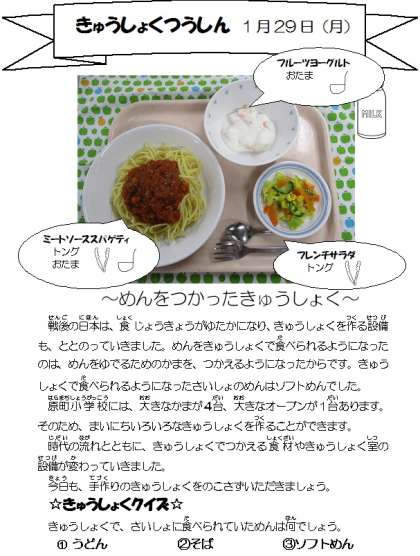 きゅうしょくつうしん １月２９日（月）
フルーツヨーグルト
おたま
MILK
ミートソーススパゲティ
トング
おたま
フレンチサラダ
トング
～めんをつかったきゅうしょく～
戦後の日本は、食じょうきょうがゆたかになり、きゅうしょくを作る設備
も、ととのっていきました。めんをきゅうしょくで食べられるようになった
のは、めんをゆでるためのかまを、つかえるようになったからです。きゅう
しょくで食べられるようになったさいしょのめんはソフトめんでした。
原町小学校には、大きなかまが４台、大きなオーブンが１台あります。
そのため、まいにちいろいろなきゅうしょくを作ることができます。
時代の流れとともに、きゅうしょくでつかえる食材やきゅうしょく室の
設備が変わっていきました。
今日も、手作りのきゅうしょくをのこさずいただきましょう。
☆きゅうしょくクイズ☆
きゅうしょくで、さいしょに食べられていためんは何でしょう。
① うどん ②そば ③ソフトめん